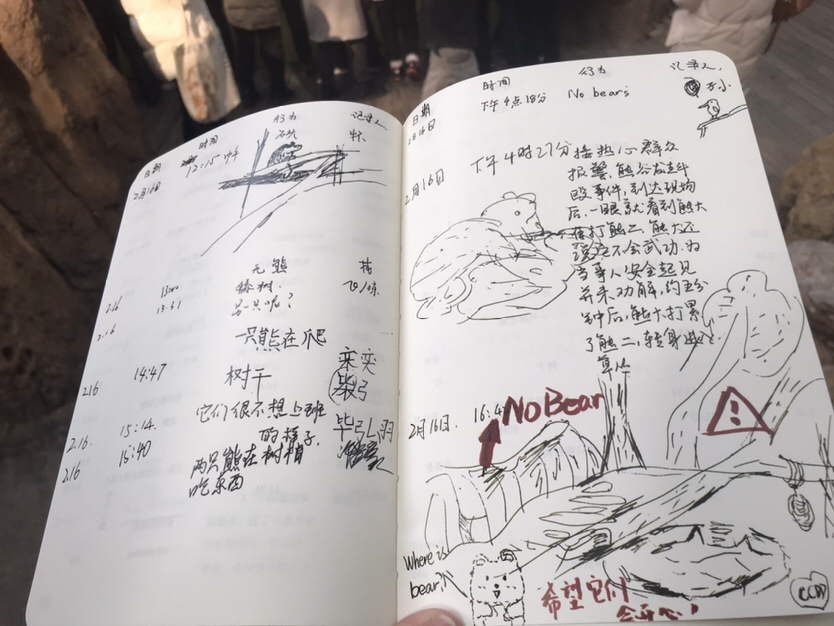 日期 时间 行为 记录人
2月16日 12:15
无熊
216 1300
13:31 另一只呢?
2.16 一只熊在爬
216 14:47 树干 栾奕
2.16. 15:14. 它们很不想上班
的样子.
216 15:40 两只熊在树梢
吃东西
日期 时间 行为 记录人
2月16日 下午4点18分 No bears
2月16日 下午4时27分接热心群众
报警,熊谷发生斗
殴事件,到达现场
后,一眼就看到熊大
在打熊二,熊大还
不会武功.为
当事人安全起见
并未劝解,约
钟后,熊大打累
了熊二,转身
2月16日. 16:4
No Bear
Where is
bear?
希望它们
会开心!
CCW